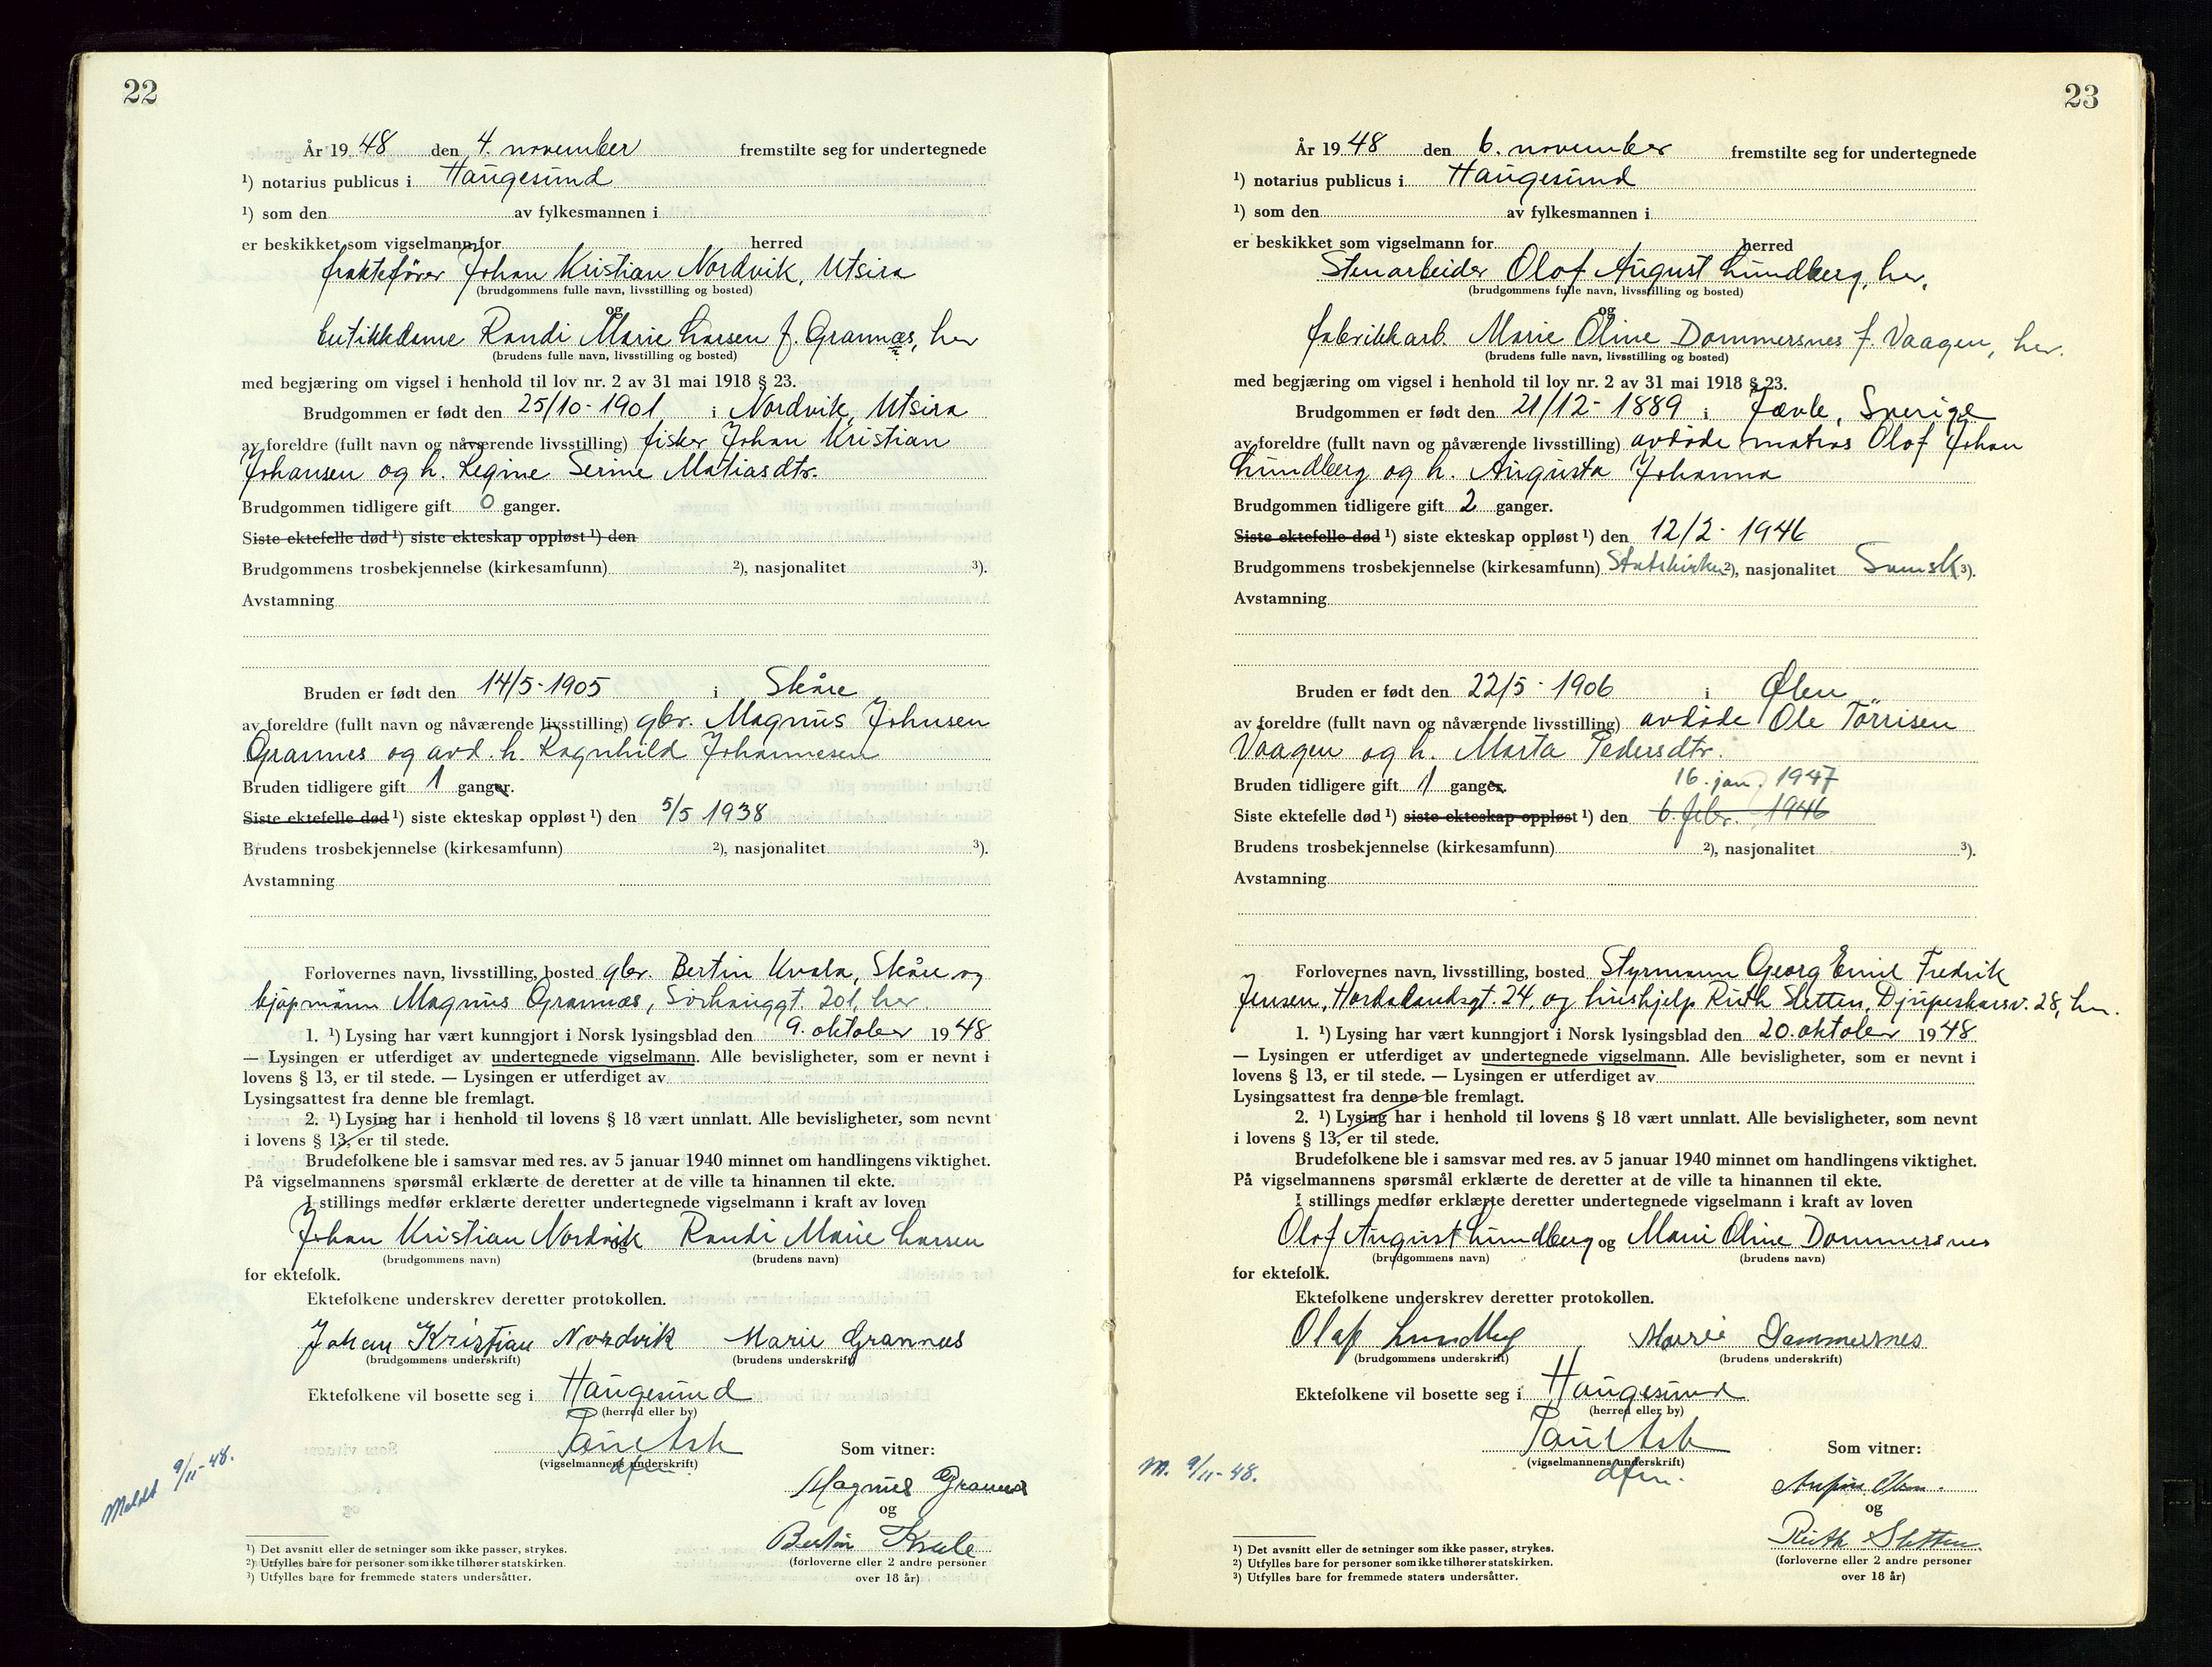 22
År 1948 den 4. november fremstilte seg for undertegnede
¹) notarius publicus i Haugesund
¹) som den av fylkesmannen i
er beskikket som vigselmann for herred
fraktefører Johan Kristian Nordvik, Utsira
(brudgommens fulle navn, livsstilling og bosted)
og
butikkdame Randi Marie Larsen f. Grannæs, her
(brudens fulle navn, livsstilling og bosted)
med begjæring om vigsel i henhold til lov nr. 2 av 31 mai 1918 § 23.
Brudgommen er født den 25/10-1901 i Nordvik, Utsira
av foreldre (fullt navn og nåværende livsstilling) fisker Johan Kristian
Johansen og h. Regine Serine Matiasdtr.
Brudgommen tidligere gift 0 ganger.
Siste ektefelle død ¹) siste ekteskap oppløst ¹) den
Brudgommens trosbekjennelse (kirkesamfunn) ²), nasjonalitet ³).
Avstamning
Bruden er født den 14/5-1905 i Skåre
av foreldre (fullt navn og nåværende livsstilling) gbr. Magnus Johnsen
Grannes og avd. h. Ragnhild Johannesen
Bruden tidligere gift 1 ganger.
Siste ektefelle død ¹) siste ekteskap oppløst ¹) den 5/5 1938
Brudens trosbekjennelse (kirkesamfunn) ²), nasjonalitet ³).
Avstamning
Forlovernes navn, livsstilling, bosted gbr. Bertin Kvala, Skåre og
kjøpmann Magnus Grannæs, Sørhauggt. 201, her
1. ¹) Lysing har vært kunngjort i Norsk lysingsblad den 9. oktober 1948
— Lysingen er utferdiget av undertegnede vigselmann. Alle bevisligheter, som er nevnt i
lovens § 13, er til stede. — Lysingen er utferdiget av
Lysingsattest fra denne ble fremlagt.
2. ¹) Lysing har i henhold til lovens § 18 vært unnlatt. Alle bevisligheter, som nevnt
i lovens § 13, er til stede.
Brudefolkene ble i samsvar med res. av 5 januar 1940 minnet om handlingens viktighet.
På vigselmannens spørsmål erklærte de deretter at de ville ta hinannen til ekte.
I stillings medfør erklærte deretter undertegnede vigselmann i kraft av loven
Johan Kristian Nordvik og Randi Marie Larsen
(brudgommens navn) (brudens navn)
for ektefolk.
Ektefolkene underskrev deretter protokollen.
Johan Kristian Nordvik Marie Grannæs
(brudgommens underskrift) (brudens underskrift)
Ektefolkene vil bosette seg i Haugesund
(herred eller by)
Paul Ask Som vitner:
(vigselmannens underskrift)
dfm.
Meldt 9/11-48.
Magnus Grannæs
og
Bertin Kvale
(forloverne eller 2 andre personer
over 18 år)
¹) Det avsnitt eller de setninger som ikke passer, strykes.
²) Utfylles bare for personer som ikke tilhører statskirken.
³) Utfylles bare for fremmede staters undersåtter.
23
År 1948 den 6. november fremstilte seg for undertegnede
¹) notarius publicus i Haugesund
¹) som den av fylkesmannen i
er beskikket som vigselmann for herred
Stenarbeider Olof August Lundberg, her,
(brudgommens fulle navn, livsstilling og bosted)
og
fabrikkarb. Marie Oline Dommersnes f. Vaagen, her.
(brudens fulle navn, livsstilling og bosted)
med begjæring om vigsel i henhold til lov nr. 2 av 31 mai 1918 § 23.
Brudgommen er født den 21/12-1889 i Jævle, Sverige
av foreldre (fullt navn og nåværende livsstilling) avdøde matros Olof Johan
Lundberg og h. Augusta Johanna
Brudgommen tidligere gift 2 ganger.
Siste ektefelle død ¹) siste ekteskap oppløst ¹) den 12/2-1946
Brudgommens trosbekjennelse (kirkesamfunn) Statskirken ²), nasjonalitet Svensk ³).
Avstamning
Bruden er født den 22/5-1906 i Ølen
av foreldre (fullt navn og nåværende livsstilling) avdøde Ole Tørrisen
Vaagen og h. Marta Pedersdtr.
Bruden tidligere gift 1 ganger. 16. jan. 1947
Siste ektefelle død ¹) siste ekteskap oppløst ¹) den 6. febr. 1946
Brudens trosbekjennelse (kirkesamfunn) ²), nasjonalitet ³).
Avstamning
Forlovernes navn, livsstilling, bosted Styrmann Georg Emil Fredrik
Jensen, Hordalandsgt. 24, og hushjelp Ruth Sletten, Djupeskarsv. 28, her.
1. ¹) Lysing har vært kunngjort i Norsk lysingsblad den 20. oktober 1948
— Lysingen er utferdiget av undertegnede vigselmann. Alle bevisligheter, som er nevnt i
lovens § 13, er til stede. — Lysingen er utferdiget av
Lysingsattest fra denne ble fremlagt.
2. ¹) Lysing har i henhold til lovens § 18 vært unnlatt. Alle bevisligheter, som nevnt
i lovens § 13, er til stede.
Brudefolkene ble i samsvar med res. av 5 januar 1940 minnet om handlingens viktighet.
På vigselmannens spørsmål erklærte de deretter at de ville ta hinannen til ekte.
I stillings medfør erklærte deretter undertegnede vigselmann i kraft av loven
Olof August Lundberg og Marie Oline Dommersnes
(brudgommens navn) (brudens navn)
for ektefolk.
Ektefolkene underskrev deretter protokollen.
Olaf Lundberg Marie Dommersnes
(brudgommens underskrift) (brudens underskrift)
Ektefolkene vil bosette seg i Haugesund
(herred eller by)
Paul Ask Som vitner:
(vigselmannens underskrift)
dfm.
M. 9/11-48.
og
Ruth Sletten
(forloverne eller 2 andre personer
over 18 år)
¹) Det avsnitt eller de setninger som ikke passer, strykes.
²) Utfylles bare for personer som ikke tilhører statskirken.
³) Utfylles bare for fremmede staters undersåtter.